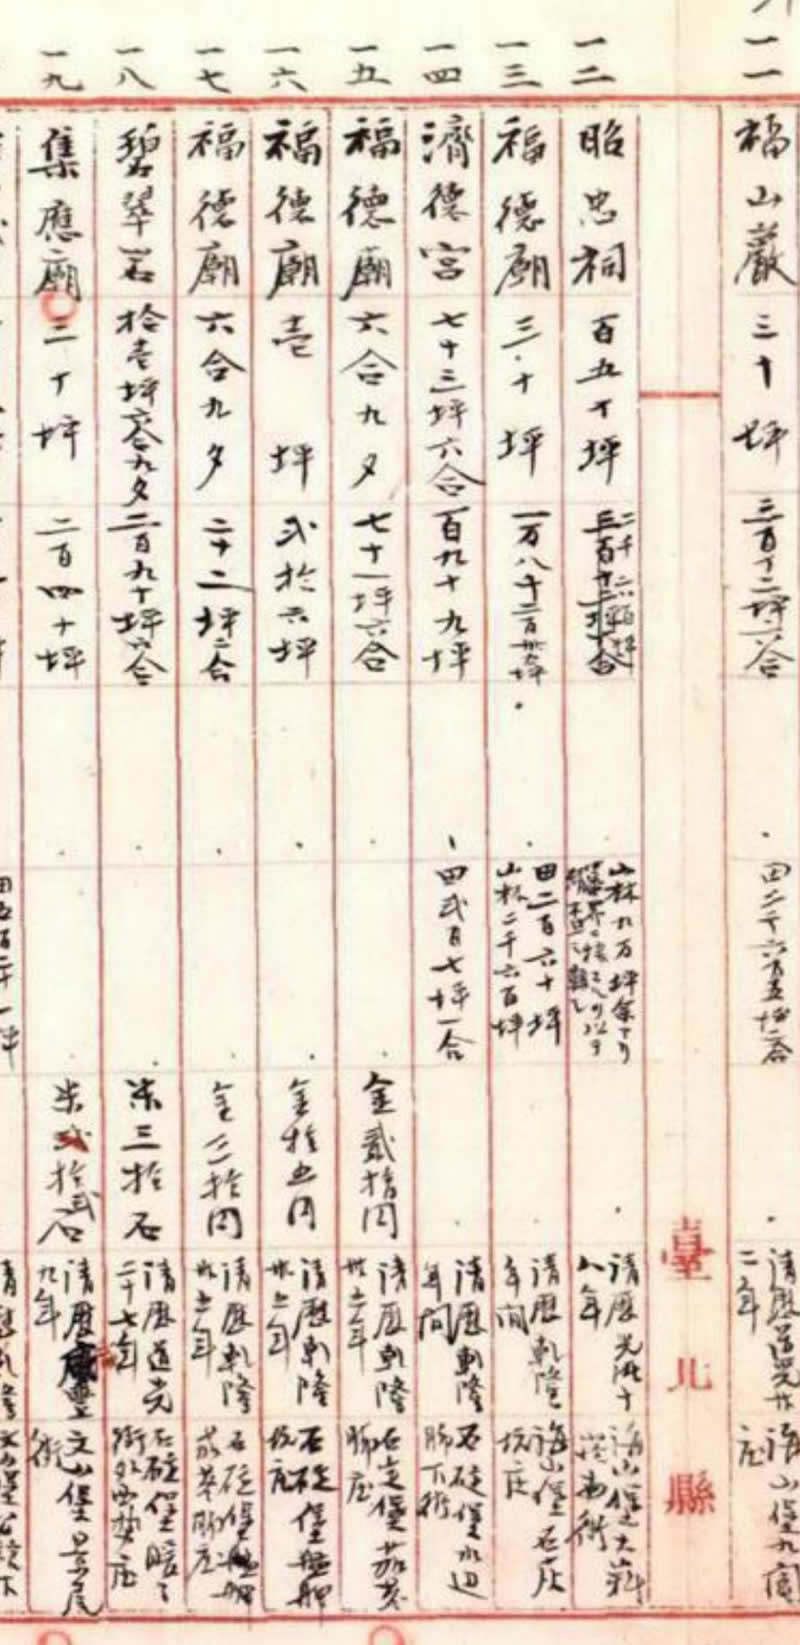 一一
福山巖
三十坪
三百十二坪六合
清歴道光廿
二年
海山堡九
庄
臺北縣
一二
昭忠祠
百五十坪
二千六百坪
山林九万坪余アリ
清歴光緒十
八年
海山堡大嵙
崁街
一三
福德廟
三十坪
一万八千二百
田二百六十坪
山林二千六百坪
清歴乾隆
年間
海山堡石灰
坑庄
一四
濟德宮
七十三坪六合
百九十九坪
田弐百七坪一合
清歴乾隆
年間
石碇堡水辺
脚下街
一五
福德廟
六合九夕
七十一坪六合
金貳拾円
清歴乾隆
卅二年
石碇堡
脚庄
一六
福德廟
壱坪
弐拾六坪
金拾五円
清歴乾隆
卅二年
石碇堡
坑庄
一七
福德廟
六合九夕
二十二坪二合
金二拾円
清歴乾隆
卅二年
石碇堡
脚庄
一八
碧翠岩
拾壱坪六合九夕
二百九十坪六合
米三拾石
清歴道光
二十七年
石碇堡暖々
街外西勢庄
一九
集應廟
二十坪
二百四十坪
米弐拾弐石
清歴咸豐
九年
文山堡景尾
街